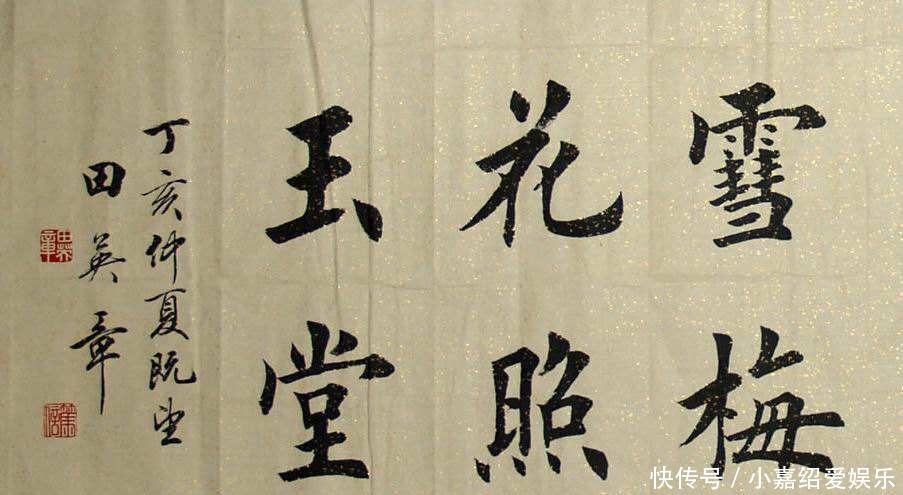 雪梅
花照
玉堂
丁亥仲夏既望
田英章
田英章
快传号 / 小嘉绍爱娱乐